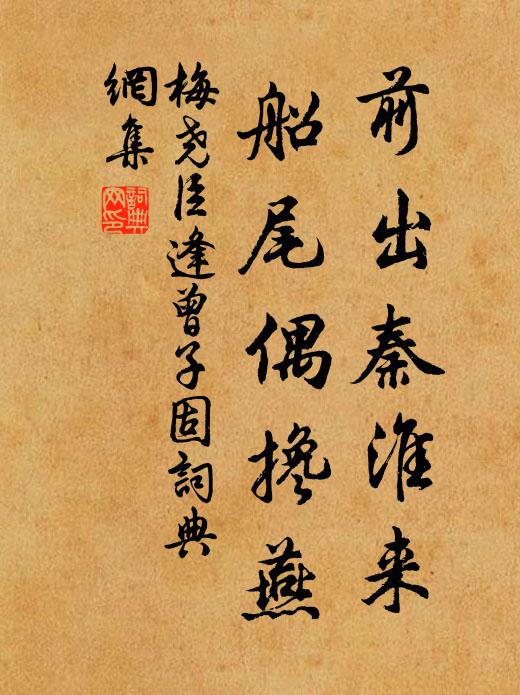 前出秦淮来
船尾偶搀燕
梅尧臣逢曾子固詞典
網集
詞典
网印